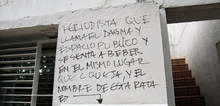 PERIODISTA QUE
LLAMA EL DIASMA Y
ESPACIO PUBLICO Y
SE SIENTA A BEBER
EN EL MISMO LUGAR
QUE QUEJA, Y EL
NOMBRE DE ESTA RATA
ES